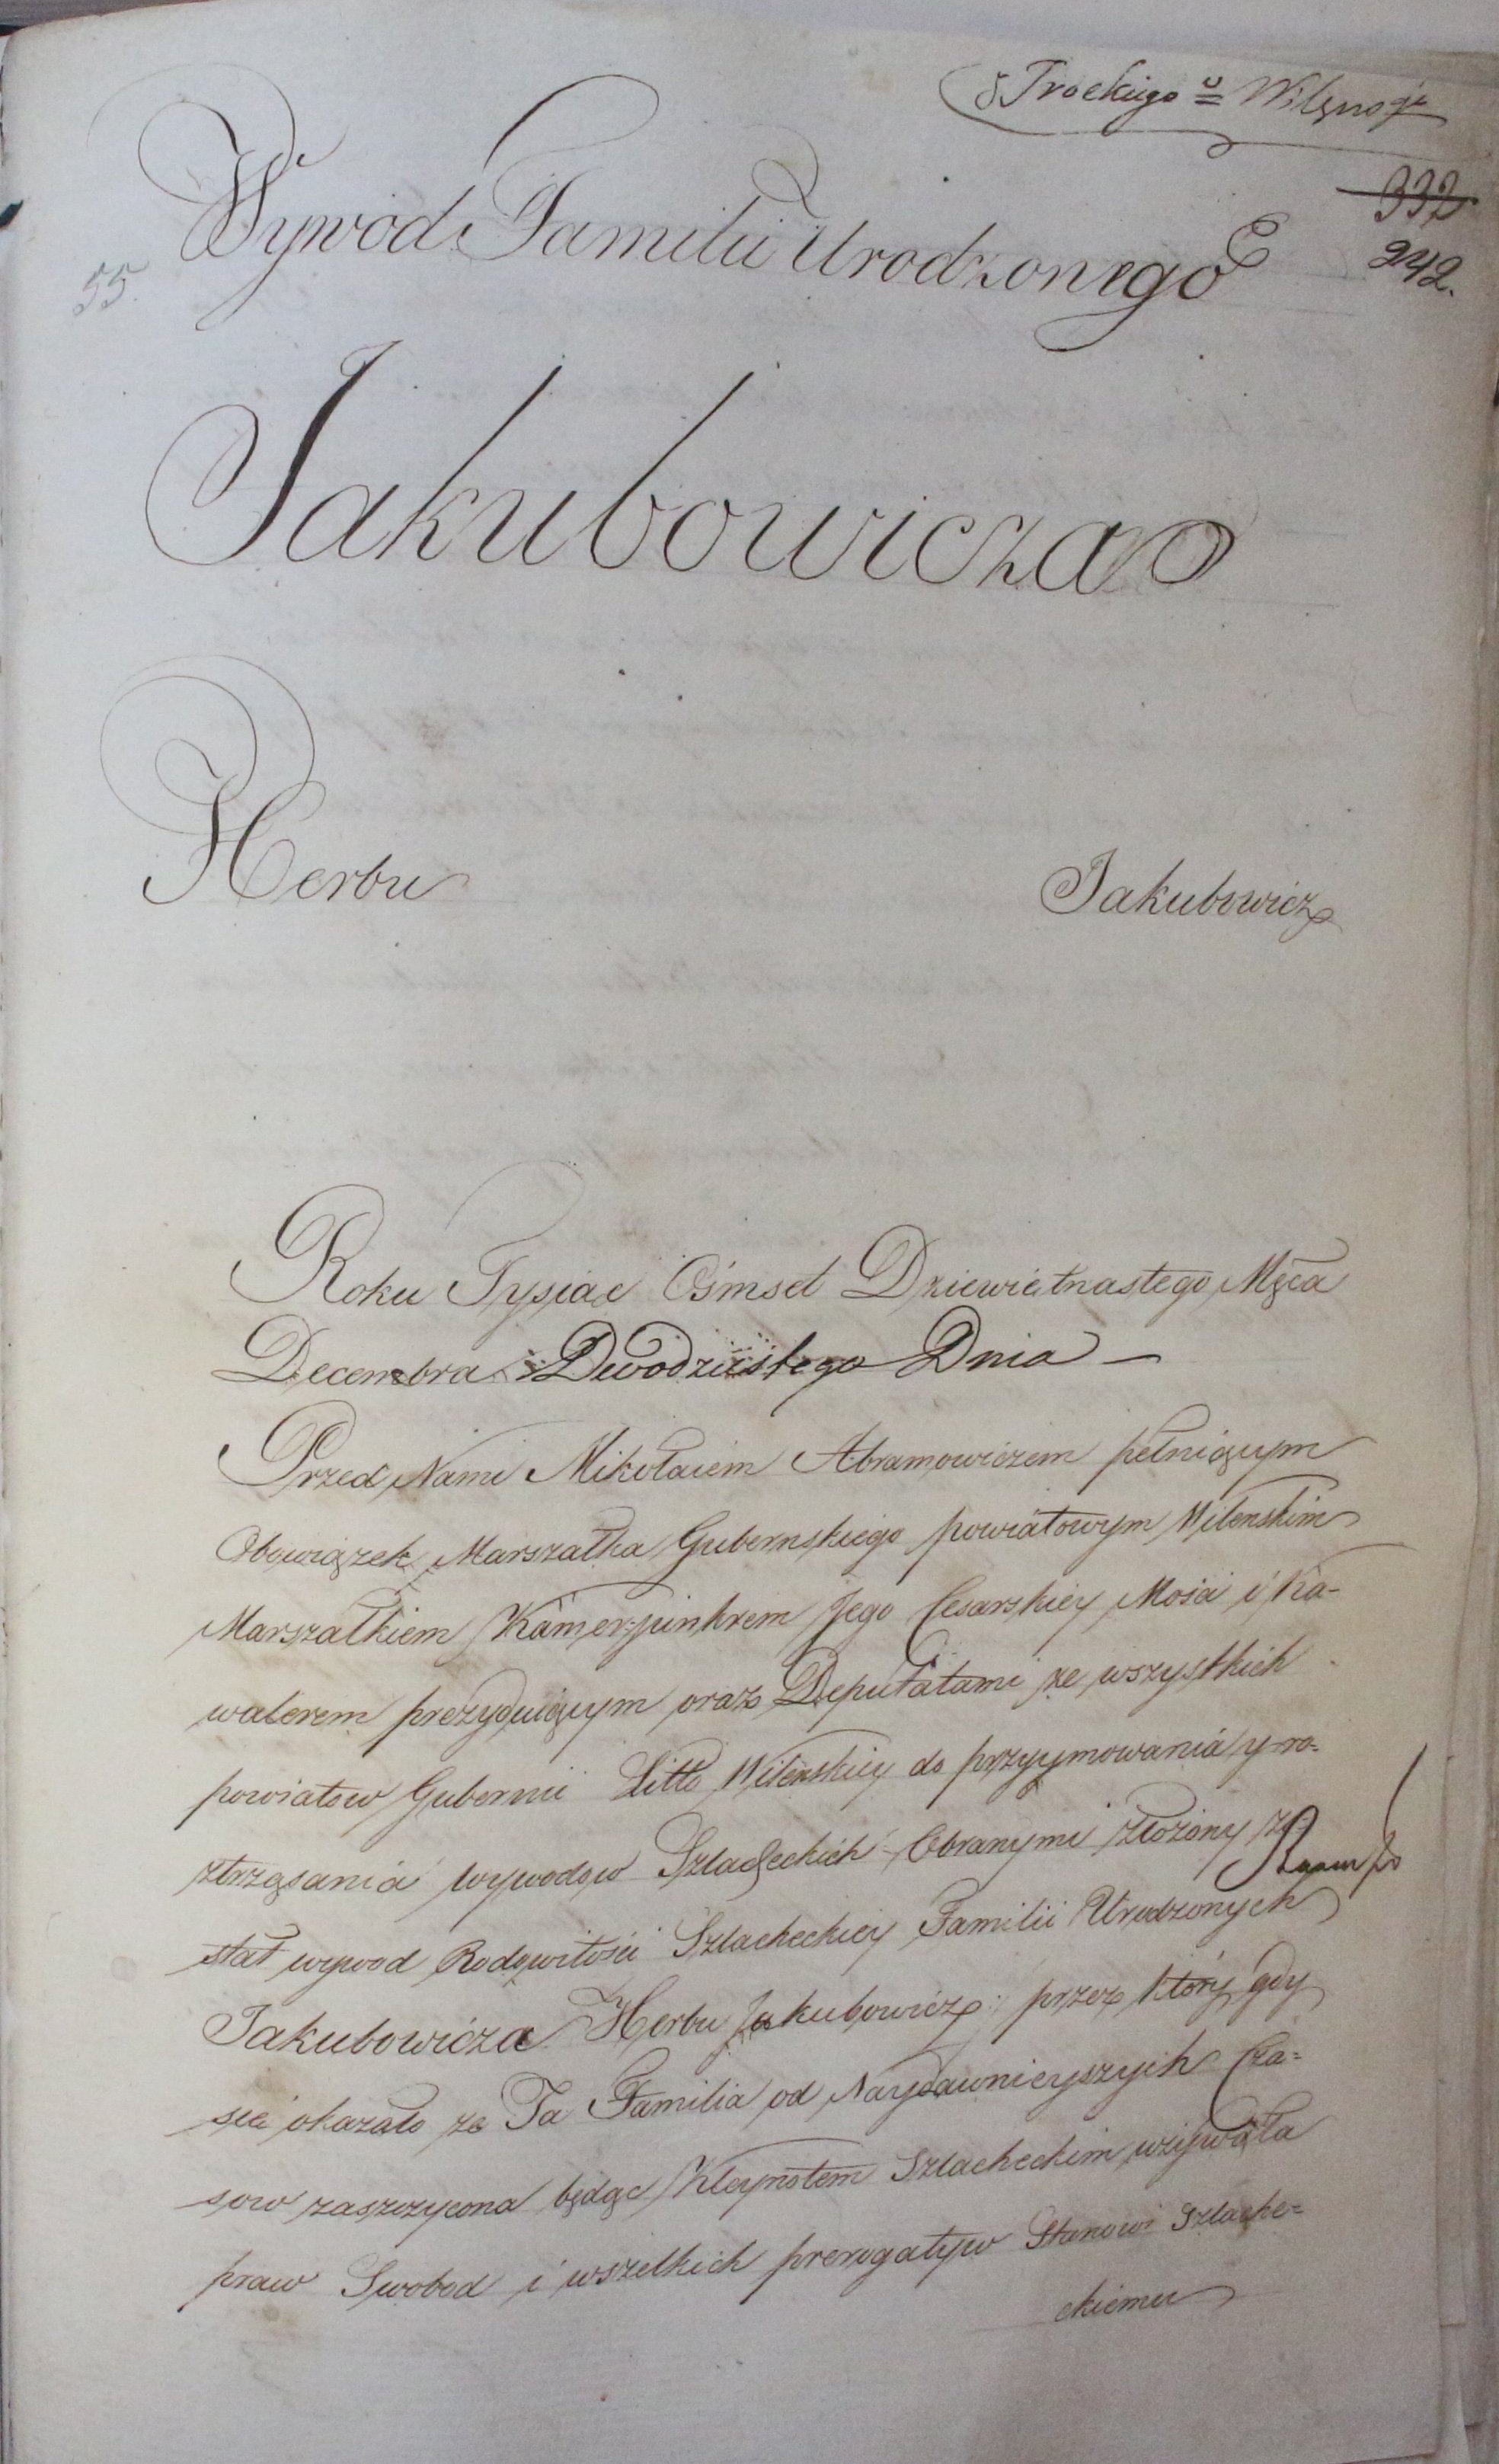 Trockiego
332
242.
55.
Wywod Familii Urodzonego
Jakubowicza
Herbu Jakubowicz
Roku Tysiac Osmset Dziewiętnastego Mca
Decembra Dwodziestego Dnia —
Przed Nami Mikołaiem Abramowiczem pełniącym
Obowiązek Marszałka Gubernskiego powiatowym Wilenskim
Marszałkiem Kamer-junkrem Jego Cesarskiey Mości i Ka-
walerem prezyduiącym oraz Deputatami ze wszystkich
powiatow Gubernii Litto Wilenskiey do przyymowania y ro-
ztrząsania wywodow Szlacheckich Obranymi złożony zo-
stał wywod Rodowitości Szlacheckiey Familii Urodzonych
Jakubowicza Herbu Jakubowicz: przez który gdy
się okazało ze Ta Familia od Naydawnieyszych Cza=
sow zaszczycona będąc Kleynotem Szlacheckim używała
praw Swobod i wszelkich prerogatyw Stanowi Szlache=
ckiemu